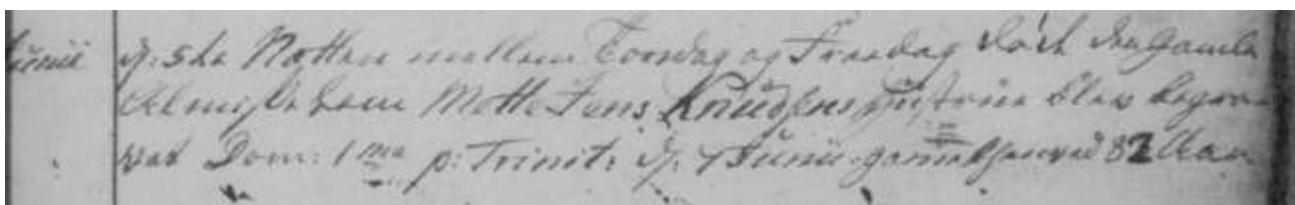 Junii d. 5te Natten mellem Torsdag og Freedag døde den gamle
Almisse lem Mette Jens Knudsens hustrue blev begra-
vet Dom: 1 ma p: Trinit: d. Junii gammel 82 Aar